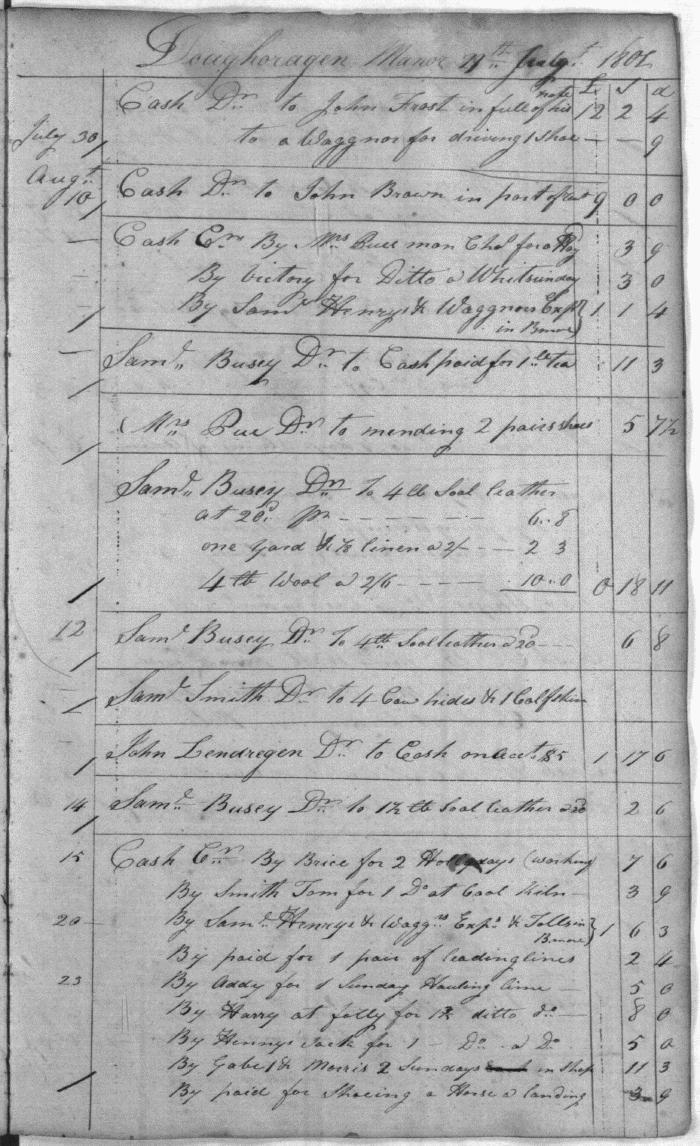 Doughoragen Manor 27th July 1802
£ S d
Cash Dr to John Frost in full of his note 12 2 4
July 30 to a Waggnor for driving 1 Shoe — — 9
Augt 10 Cash Dr to John Brown in part of 9 0 0
Cash Cr By Mrs Puee man Chs for a 3 9
By Victory for Ditto a Whitsunday 3 0
By Saml Henrys & Waggnors Exps in Bmore 1 1 4
Saml Busey Dr to Cash paid for 1 lb tea 11 3
Mrs Pue Dr to mending 2 pairs shoes 5 7½
Saml Busey Dr to 4 lb Soal leather
at 20d pr - - - - 6..8
one Yard & ⅛ linen a 2/ - - - 2 3
4 lb Wool a 2/6 - - - - 10..0 0 18 11
12 Saml Busey Dr to 4 lb Soal leather a 20d 6 8
Saml Smith Dr to 4 Cow hides & 1 Calfskin
John Lendregen Dr to Cash on acct $5 1 17 6
14 Saml Busey Dr to 1½ lb Soal leather a 20 2 6
15 Cash Cr By Brice for 2 Hollodays (working 7 6
By Smith Tom for 1 Do at Coal Kiln — 3 9
20 — By Saml Henrys & Waggns Exps & Tolls in Bmore 1 6 3
By paid for 1 pair of leadinglines 2 4
23 By Addy for 1 Sunday Hauling lime — 5 0
By Harry at folly for 1½ ditto do — 8 0
By Hennys Jack for 1 - Do - a Do 5 0
By Gabe 1 & Morris 2 Sundays in Shop 11 3
By paid for Shoeing a Horse a landing 3 9